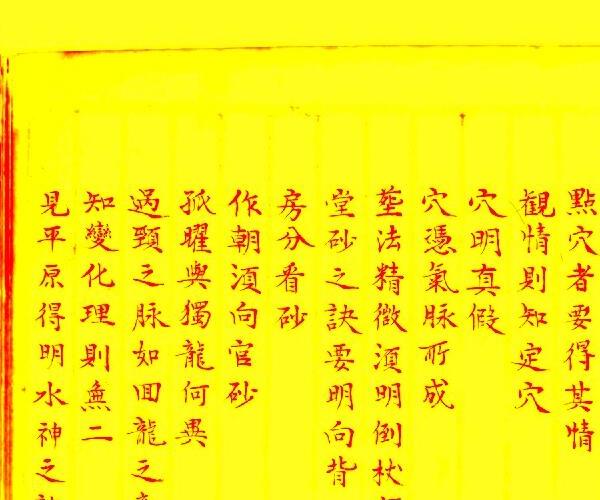 點穴者要得其情
觀情則知定穴
穴明真假
穴憑氣脉所成
塟法精微須明倒杖
堂砂之訣要明向背
房分看砂
作朝須向官砂
孤曜與獨龍何異
過頸之脉如回龍之
知變化理則無二
見平原得明水神之